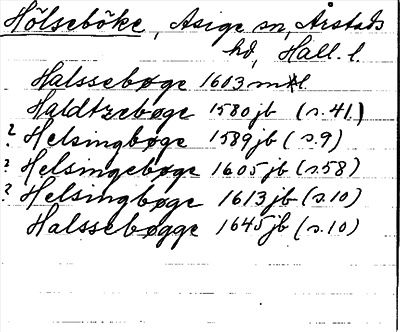 Hölseböke, Asige sn, Årstads
hd, Hall. l.
Halssebøge 1603 mtl.
Haldtzebøge 1580 jb (s. 41)
? Helsingbøge 1589 jb (s. 9)
? Helsingebøge 1605 jb (s. 58)
? Helsingbøge 1613 jb (s. 10)
Halssebøgge 1645 jb (s. 10)